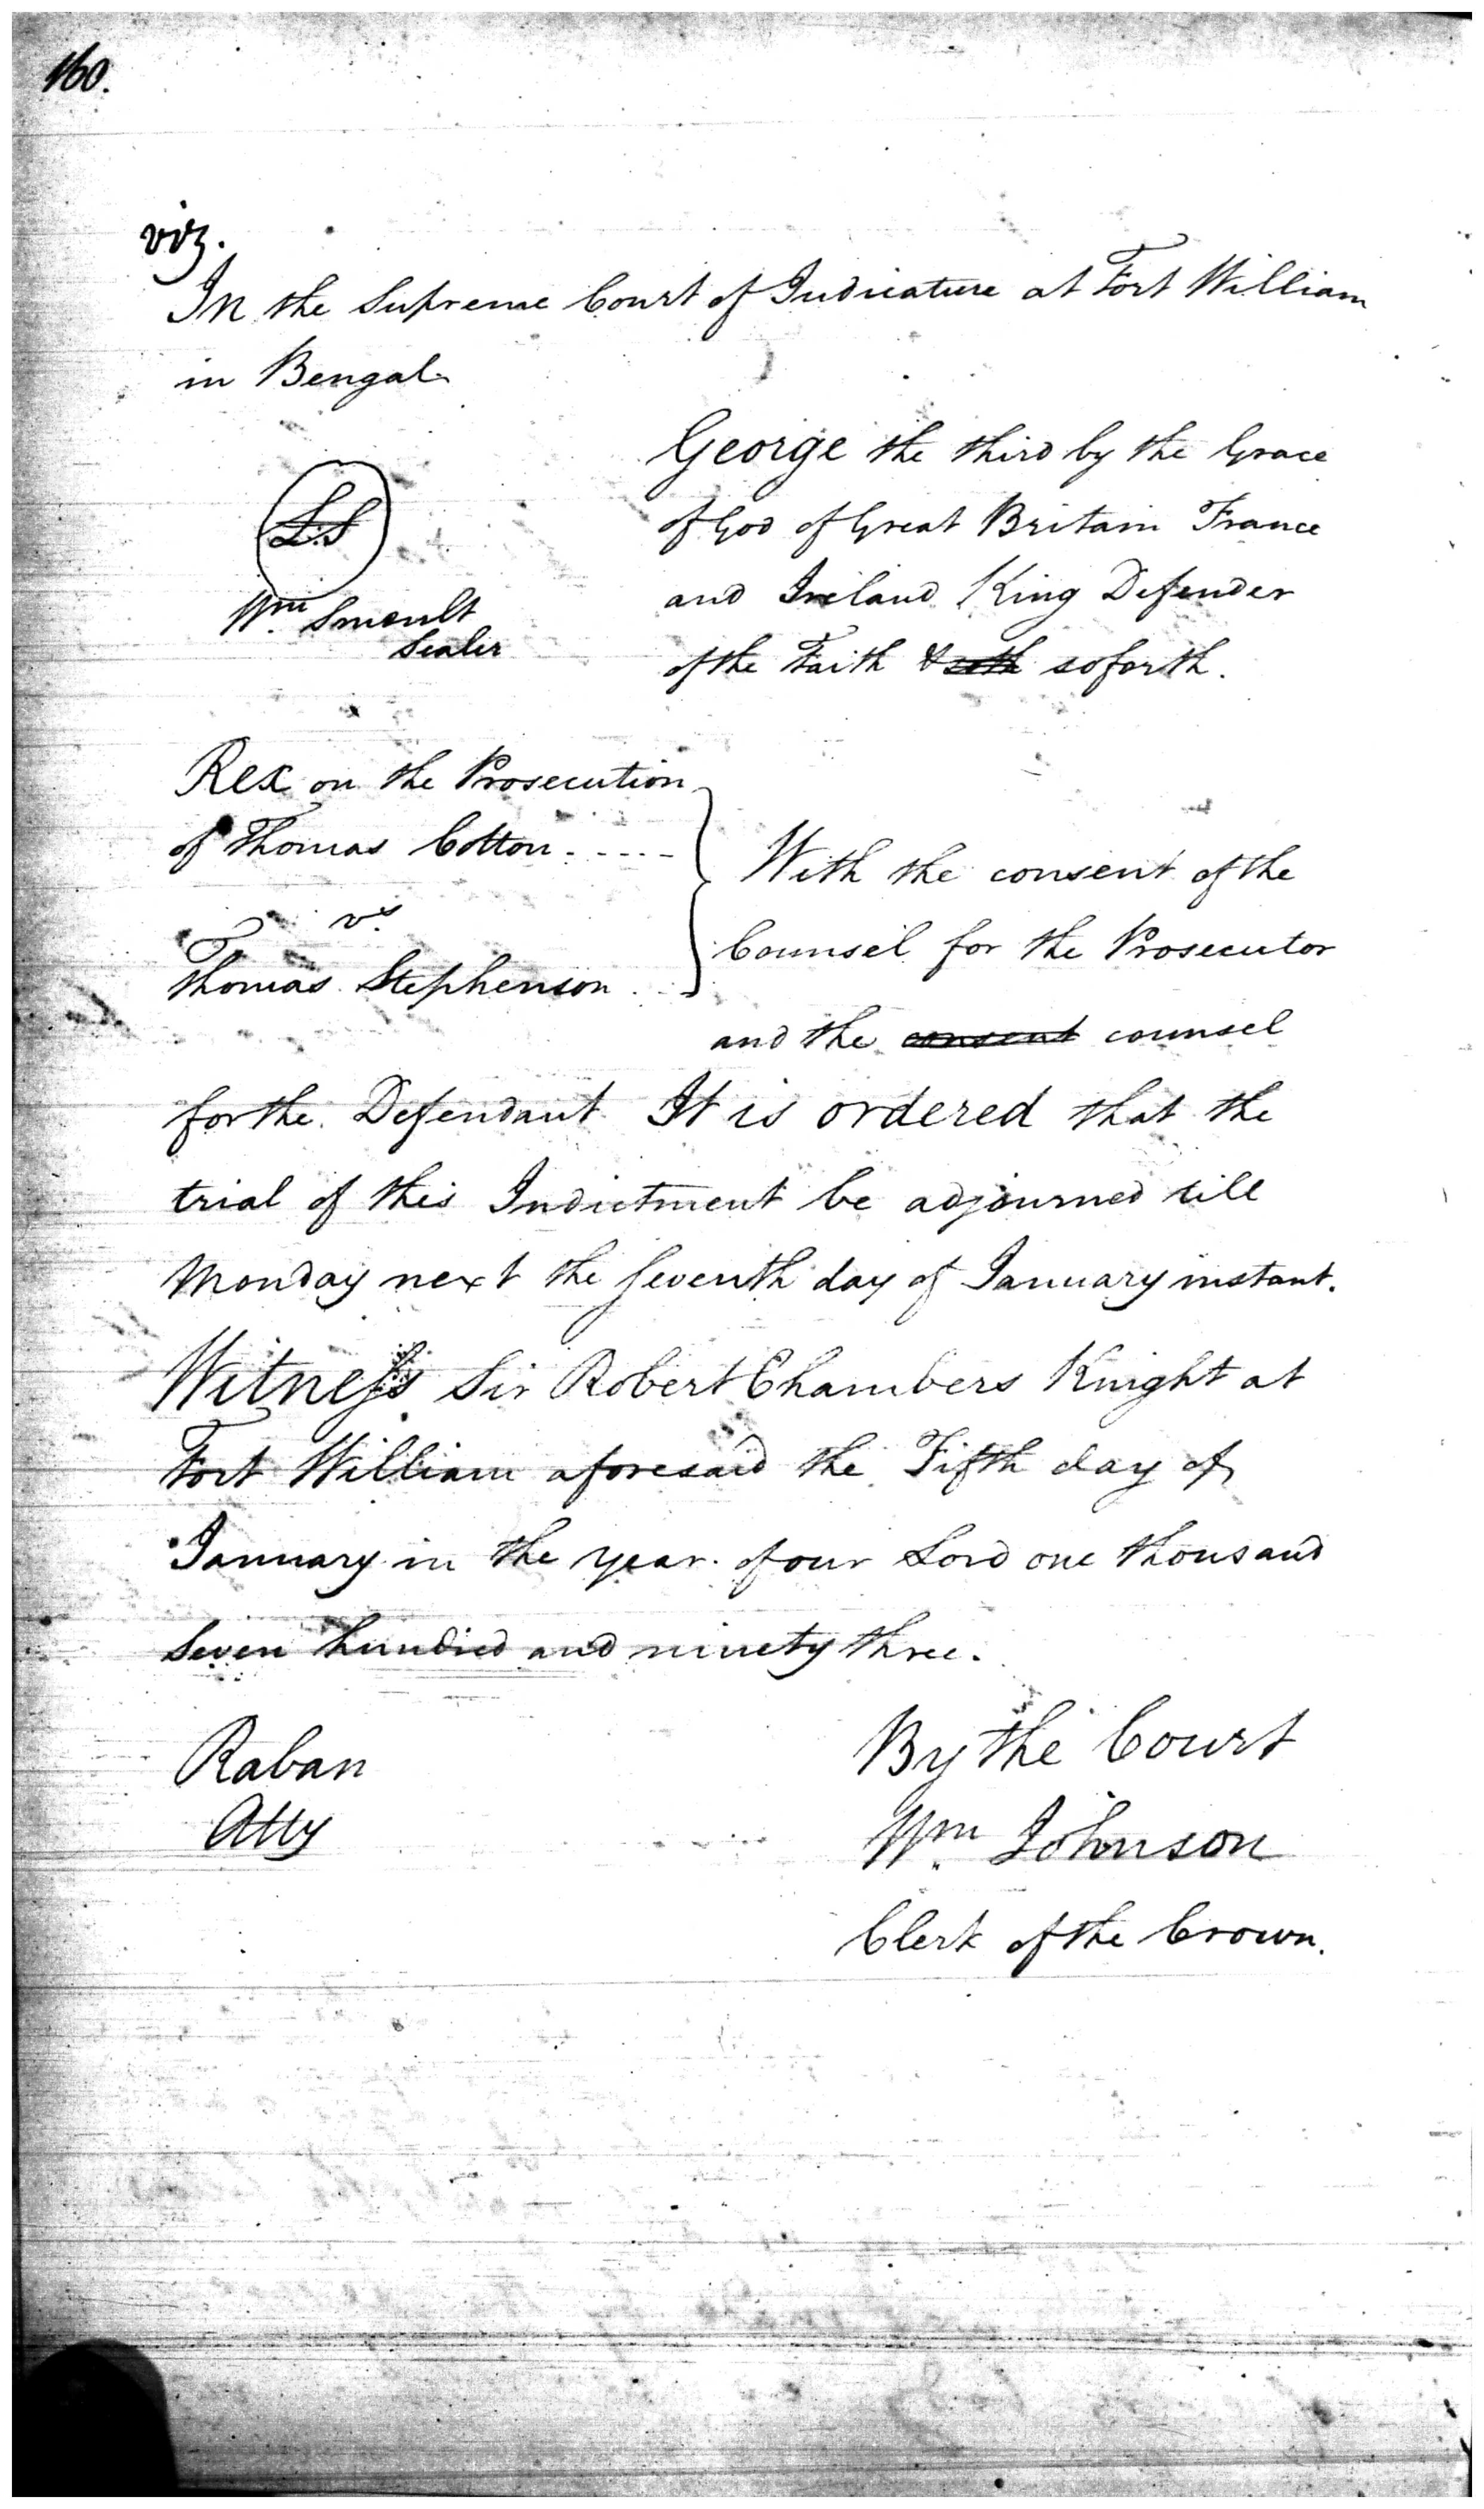 160.
viz.
In the Supreme Court of Judicature at Fort William
in Bengal.
L.S
Wm Smoult
Sealer
George the third by the Grace
of God of Great Britain France
and Ireland King Defender
of the Faith & soforth.
Rex on the Prosecution
of Thomas Cotton.----
vs.
Thomas Stephenson
With the consent of the
Counsel for the Prosecutor
and the consent counsel
for the Defendant It is ordered that the
trial of this Indictment be adjourned till
Monday next the seventh day of January instant.
Witness Sir Robert Chambers Knight at
Fort William aforesaid the Fifth day of
January in the year of our Lord one thousand
Seven hundred and ninety three.
Raban
Atty
By the Court
Wm Johnson
Clerk of the Crown.